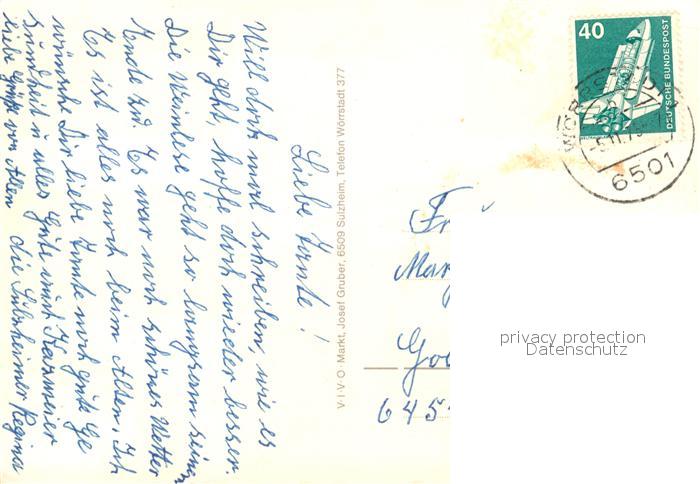 Liebe Tante!
Will doch mal schreiben, wie es
Dir geht, hoffe doch wieder besser.
Die Weinlese geht so langsam seinem
Ende zu. Es war noch schönes Wetter
Es ist alles noch beim Alten. Ich
wünsche Dir liebe Tante noch gute Ge
sundheit u alles Gute
liebe Grüße von Allen die Sulzheimer Regina
V·I·V·O·Markt, Josef Gruber, 6509 Sulzheim, Telefon Wörrstadt 377
40
DEUTSCHE BUNDESPOST
6501
Frä
Mar
Go
645
privacy protection
Datenschutz